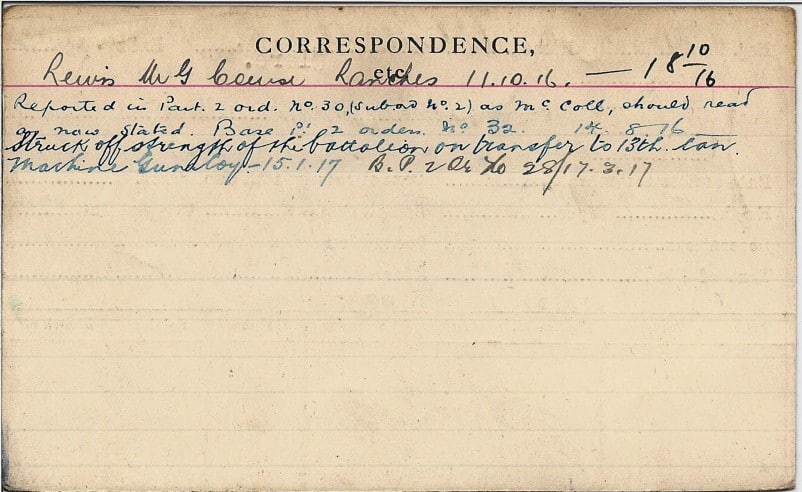 CORRESPONDENCE,
etc
Lewis M G Course 11.10.16. — 18 10/16
Reported in Part. 2 ord. No. 30, (subord No. 2) as Mc Coll, should read
as now stated. Base Pt 2 orders No 32. 14. 8. 16
Struck off strength of the battalion on transfer to 13th. Can.
Machine Gun Coy - 15.1.17 B. P. 2 Or No 28/17.3.17